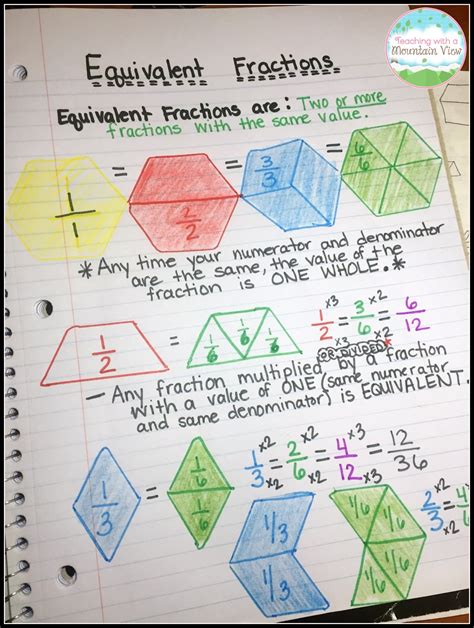 Teaching with a
Mountain View
Equivalent Fractions
Equivalent Fractions are: Two or more
fractions with the same value.
1/1 = 2/2 = 3/3 = 6/6
*Any time your numerator and denominator
are the same, the value of the
fraction is ONE WHOLE.*
1/2 = 1/6 1/6 1/6
1/2 = 3/6 = 6/12
x3 x2
x3 x2
OR DIVIDED
- Any fraction multiplied by a fraction
with a value of ONE (same numerator
and same denominator) is EQUIVALENT.
1/3 = 1/6 1/6
x2 x2 x3
1/3 = 2/6 = 4/12 = 12/36
x2 x2 x3
1/3 1/3
1/6 1/6 1/6 1/6
x2
2/3 = 4/6
x2